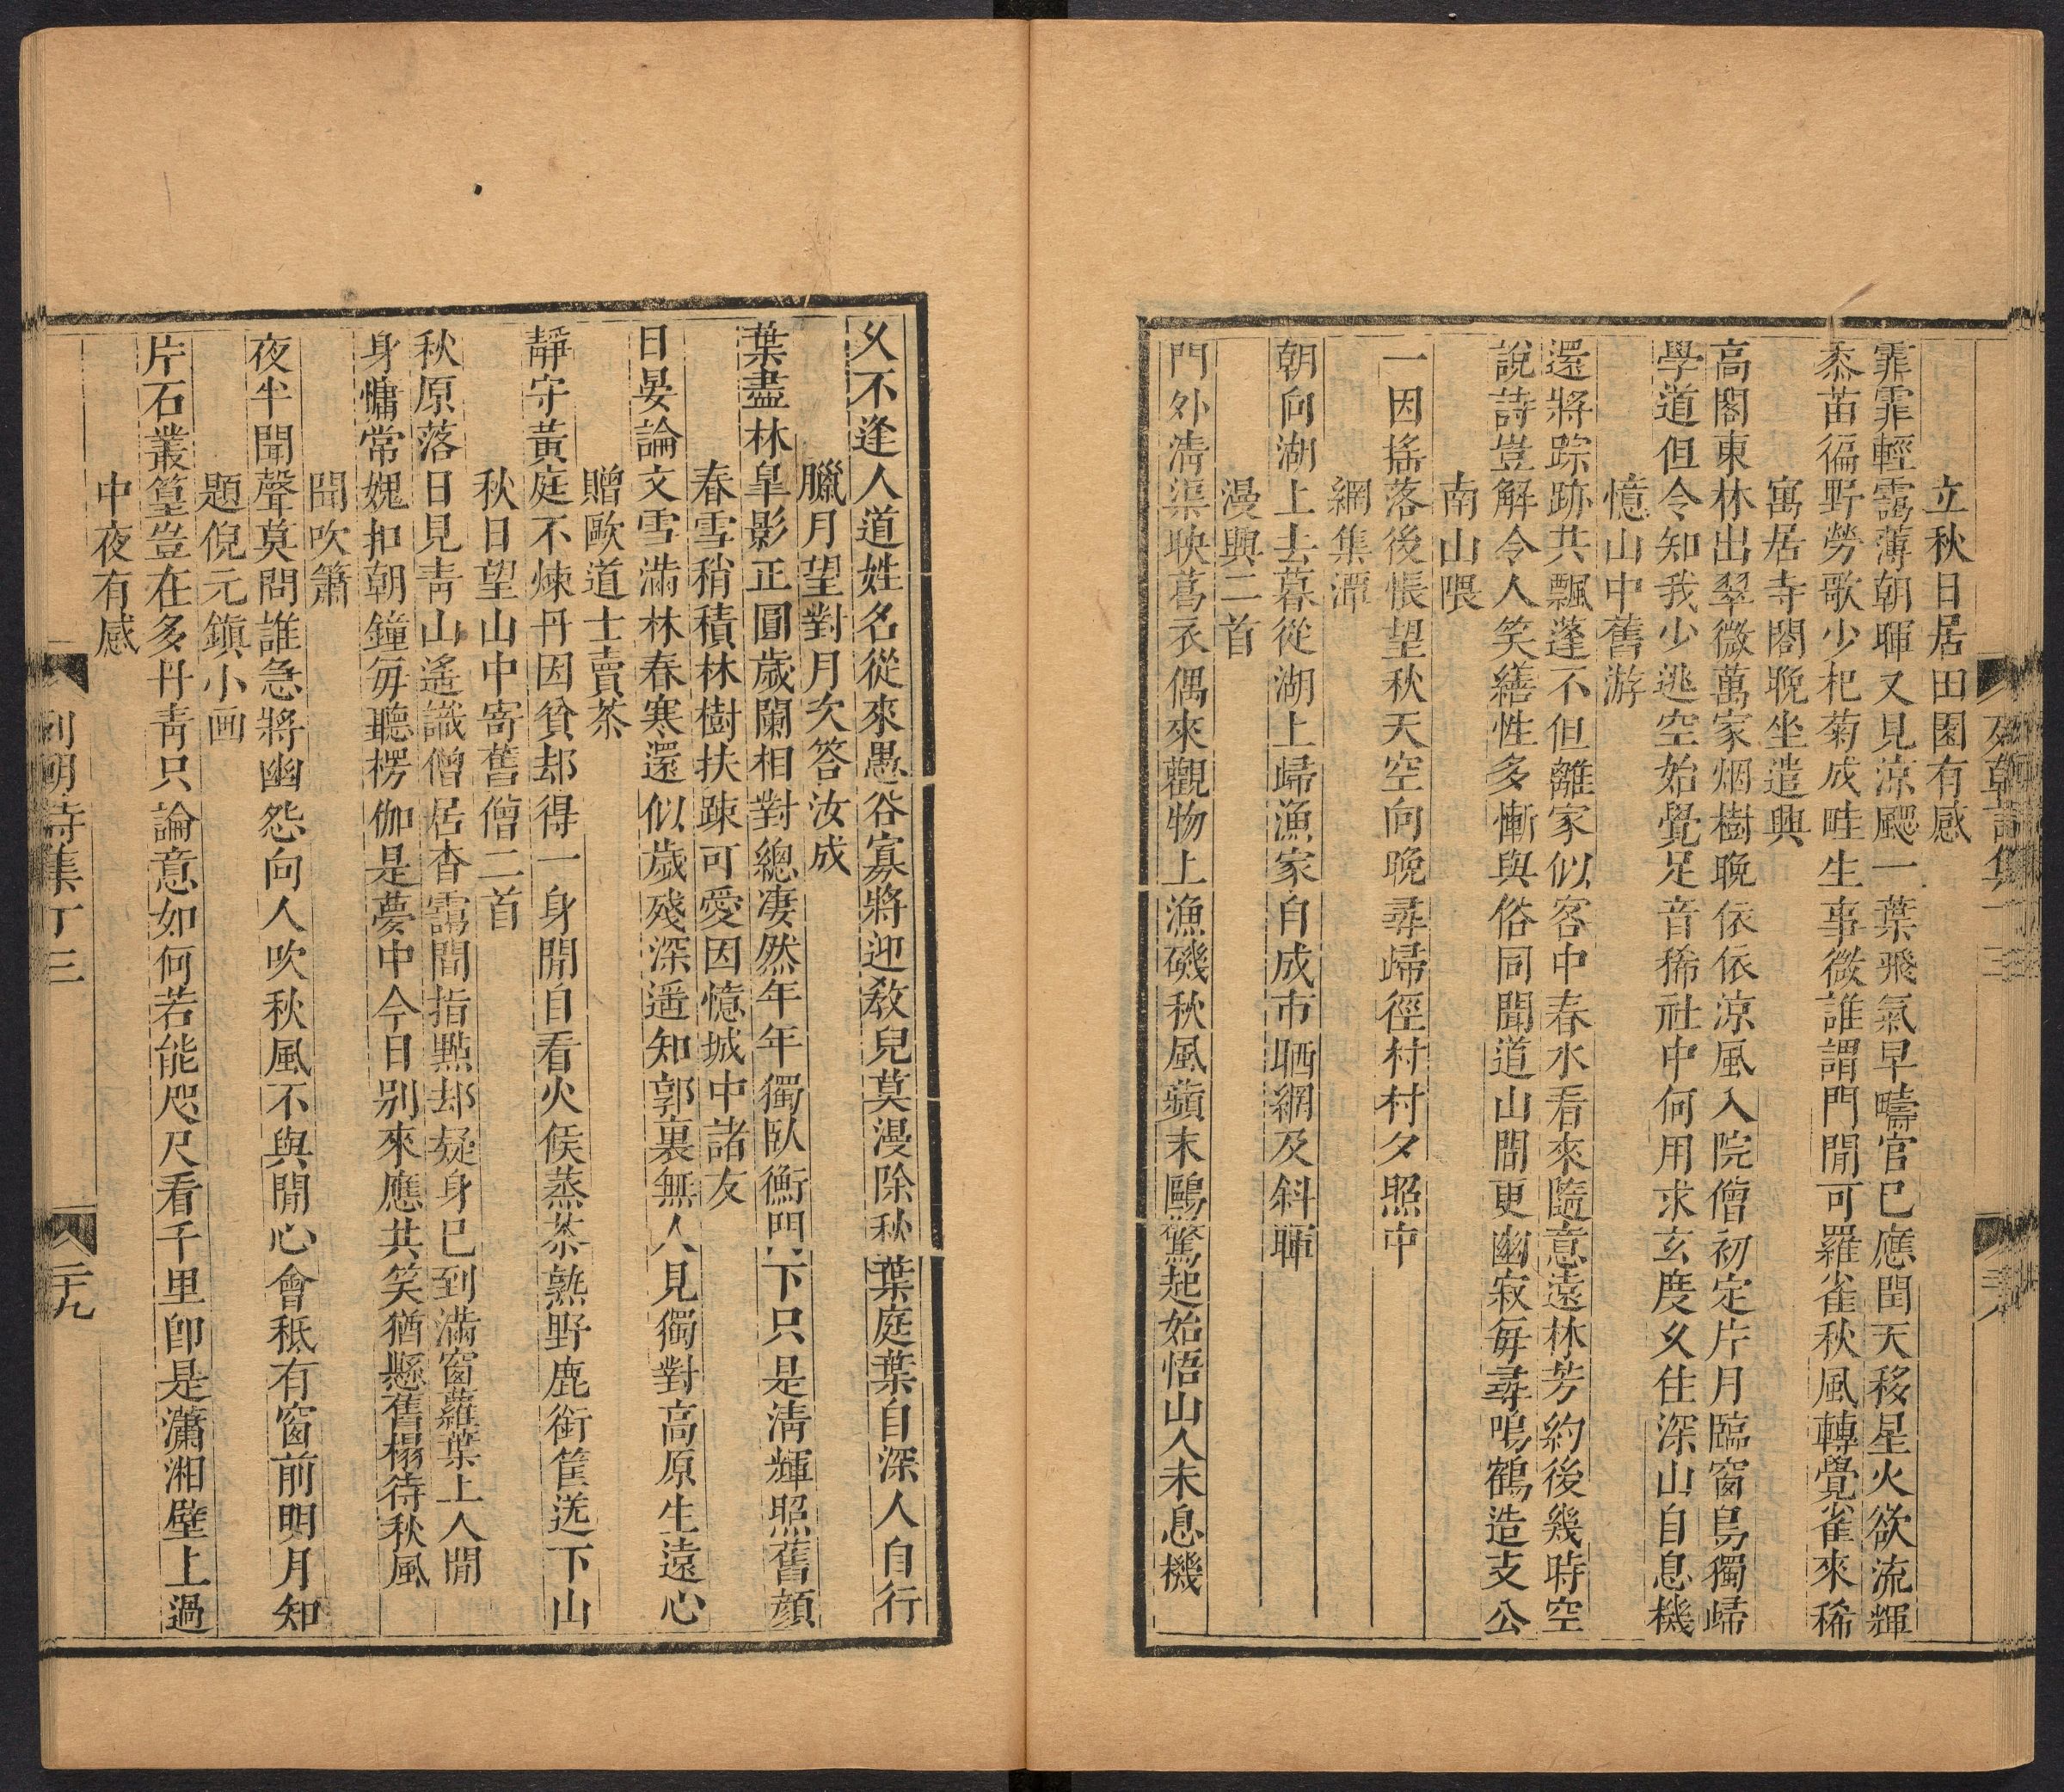 列朝詩集丁三
立秋日居田園有感
霏霏輕靄薄朝暉又見涼颸一葉飛氣早疇官已應閏天移星火欲流輝
黍苗徧野勞歌少杞菊成畦生事微誰謂門閒可羅雀秋風轉覺雀來稀
寓居寺閣晚坐遣興
高閣東林出翠微萬家烟樹晚依依涼風入院僧初定片月臨窗鳥獨歸
學道但令知我少逃空始覺足音稀社中何用求玄度久住深山自息機
憶山中舊游
還將踪跡共飄蓬不但離家似客中春水看來隨意遠林芳約後幾時空
說詩豈解令人笑繕性多慚與俗同聞道山間更幽寂每尋鳴鶴造支公
南山隈
一因搖落後悵望秋天空向晚尋歸徑村村夕照中
網集潭
朝向湖上去暮從湖上歸漁家自成市晒網及斜暉
漫興二首
門外清渠映菖衣偶來觀物上漁磯秋風蘋末鷗驚起始悟山人未息機
久不逢人道姓名從來愚谷寡將迎敎兒莫漫除秋葉庭葉自深人自行
臘月望對月次答汝成
葉盡林皐影正圓歲闌相對總凄然年年獨臥衡門下只是淸輝照舊顔
春雪稍積林樹扶疎可愛因憶城中諸友
日晏論文雪滿林春寒還似歲殘深遥知郭裏無人見獨對高原生遠心
贈歐道士賣茶
靜守黃庭不煉丹因貧却得一身閒自看火候蒸茶熟野鹿銜筐送下山
秋日望山中寄舊僧二首
秋原落日見靑山遙識僧居杳靄間指點却疑身已到滿窗蘿葉上人閒
身慵常媿扣朝鐘每聽楞伽是夢中今日别來應共笑猶懸舊榻待秋風
聞吹簫
夜半聞聲莫問誰急將幽怨向人吹秋風不與閒心會秪有窗前明月知
題倪元鎭小画
片石叢篁豈在多丹靑只論意如何若能咫尺看千里卽是瀟湘壁上過
中夜有感
列朝詩集丁三
二十九